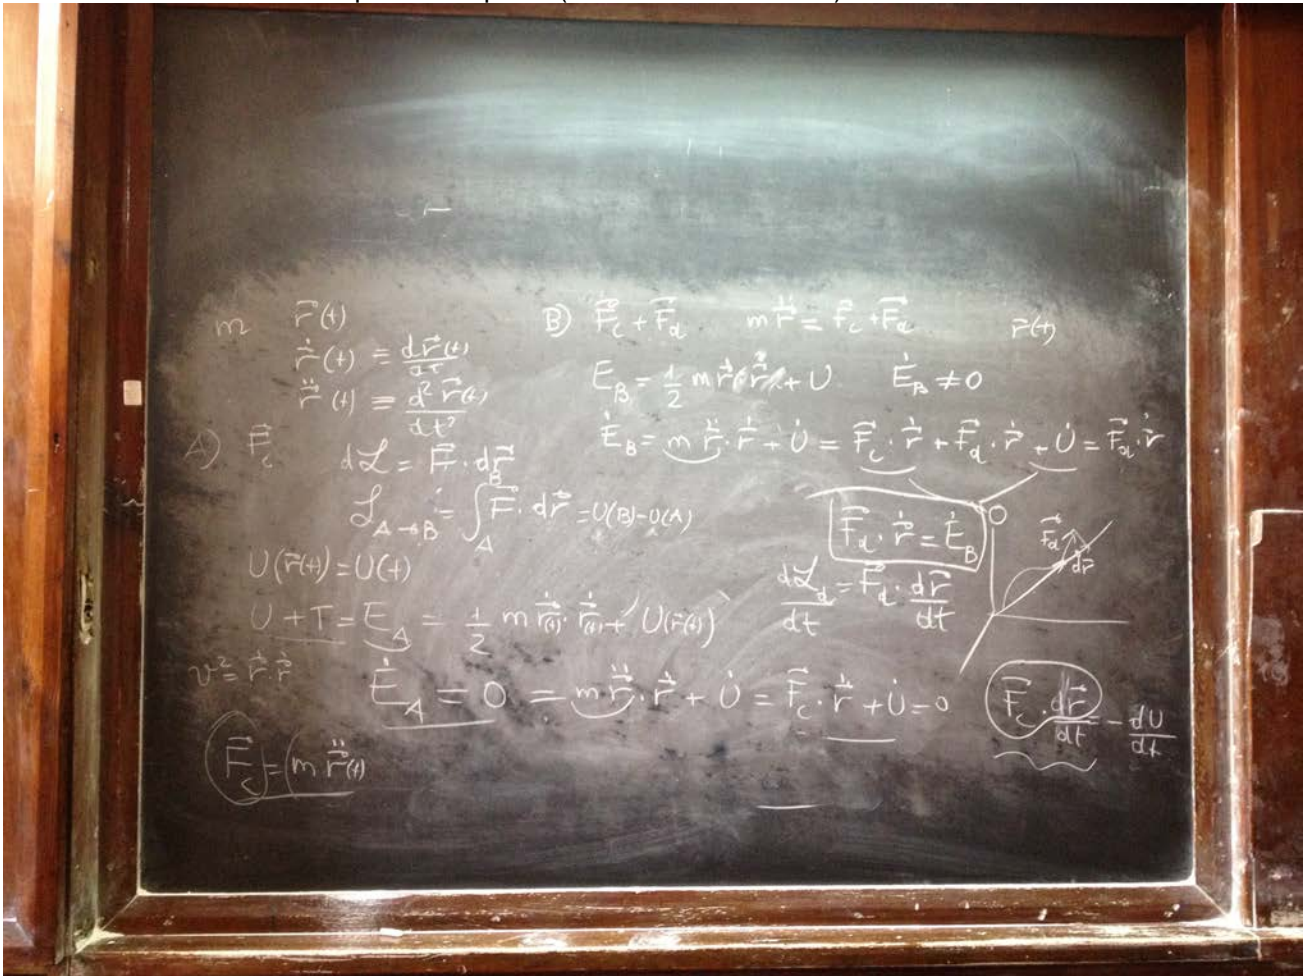 m r⃗(t)
ṙ⃗(t) = dr⃗(t)/dt
r̈⃗(t) = d²r⃗(t)/dt²
A) F⃗c
dℒ = F⃗ · dr⃗
ℒA→B = ∫_A^B F⃗ · dr⃗ = U(B) - U(A)
U(r⃗(t)) = U(t)
U + T = E_A = 1/2 m ṙ⃗(t) · ṙ⃗(t) + U(r⃗(t))
v² = ṙ⃗ · ṙ⃗
Ė_A = 0 = m r̈⃗ · ṙ⃗ + U̇ = F⃗c · ṙ⃗ + U̇ = 0
F⃗c = (m r̈⃗(t)
B) F⃗c + F⃗d m r̈⃗ = F⃗c + F⃗d r⃗(t)
E_B = 1/2 m ṙ⃗ · ṙ⃗ + U Ė_B ≠ 0
Ė_B = m r̈⃗ · ṙ⃗ + U̇ = F⃗c · ṙ⃗ + F⃗d · ṙ⃗ + U̇ = F⃗d · ṙ⃗
O
F⃗d · ṙ⃗ = Ė_B
F⃗d
dr⃗
dℒd/dt = F⃗d · dr⃗/dt
F⃗c · dr⃗/dt = - dU/dt